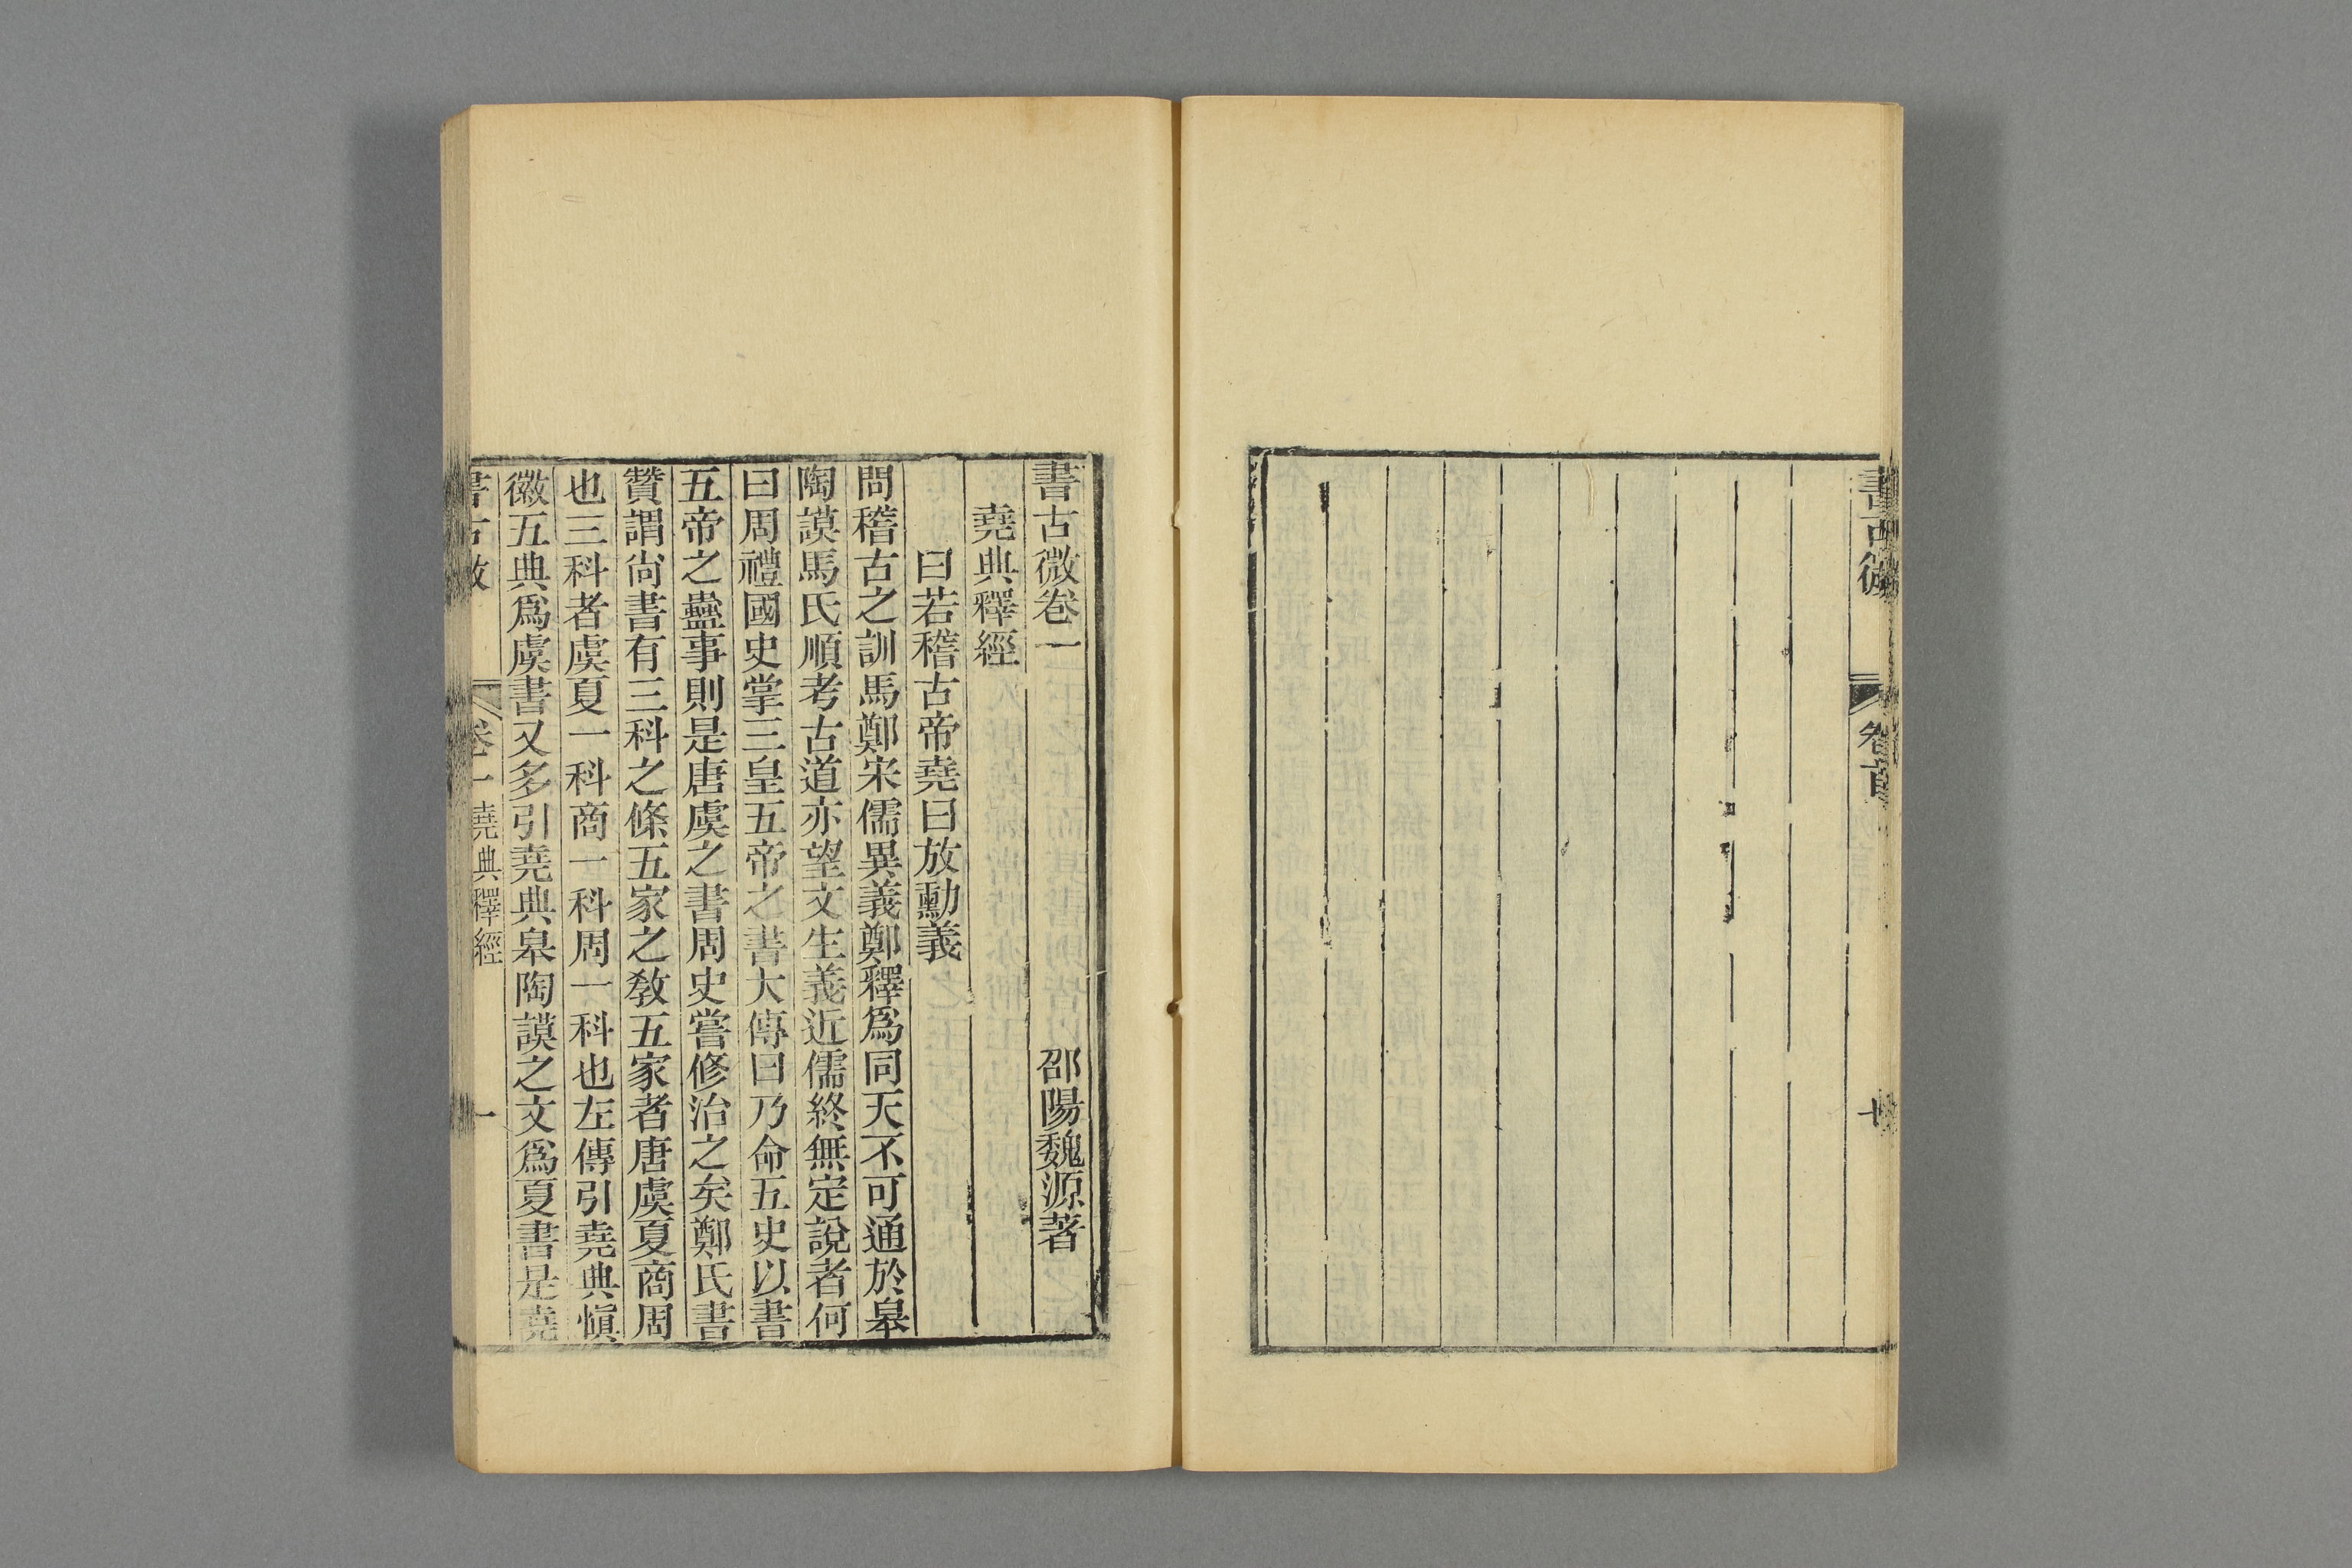 書古微
卷首
書古微卷一
邵陽魏源著
堯典釋經
曰若稽古帝堯曰放勳義
問稽古之訓馬鄭宋儒異義鄭釋爲同天不可通於皋
陶謨馬氏順考古道亦望文生義近儒終無定說者何
曰周禮國史掌三皇五帝之書大傳曰乃命五史以書
五帝之蠱事則是唐虞之書周史嘗修治之矣鄭氏書
贊謂尙書有三科之條五家之敎五家者唐虞夏商周
也三科者虞夏一科商一科周一科也左傳引堯典愼
徽五典爲虞書又多引堯典皋陶謨之文爲夏書是堯
書古微
卷一
堯典釋經
一